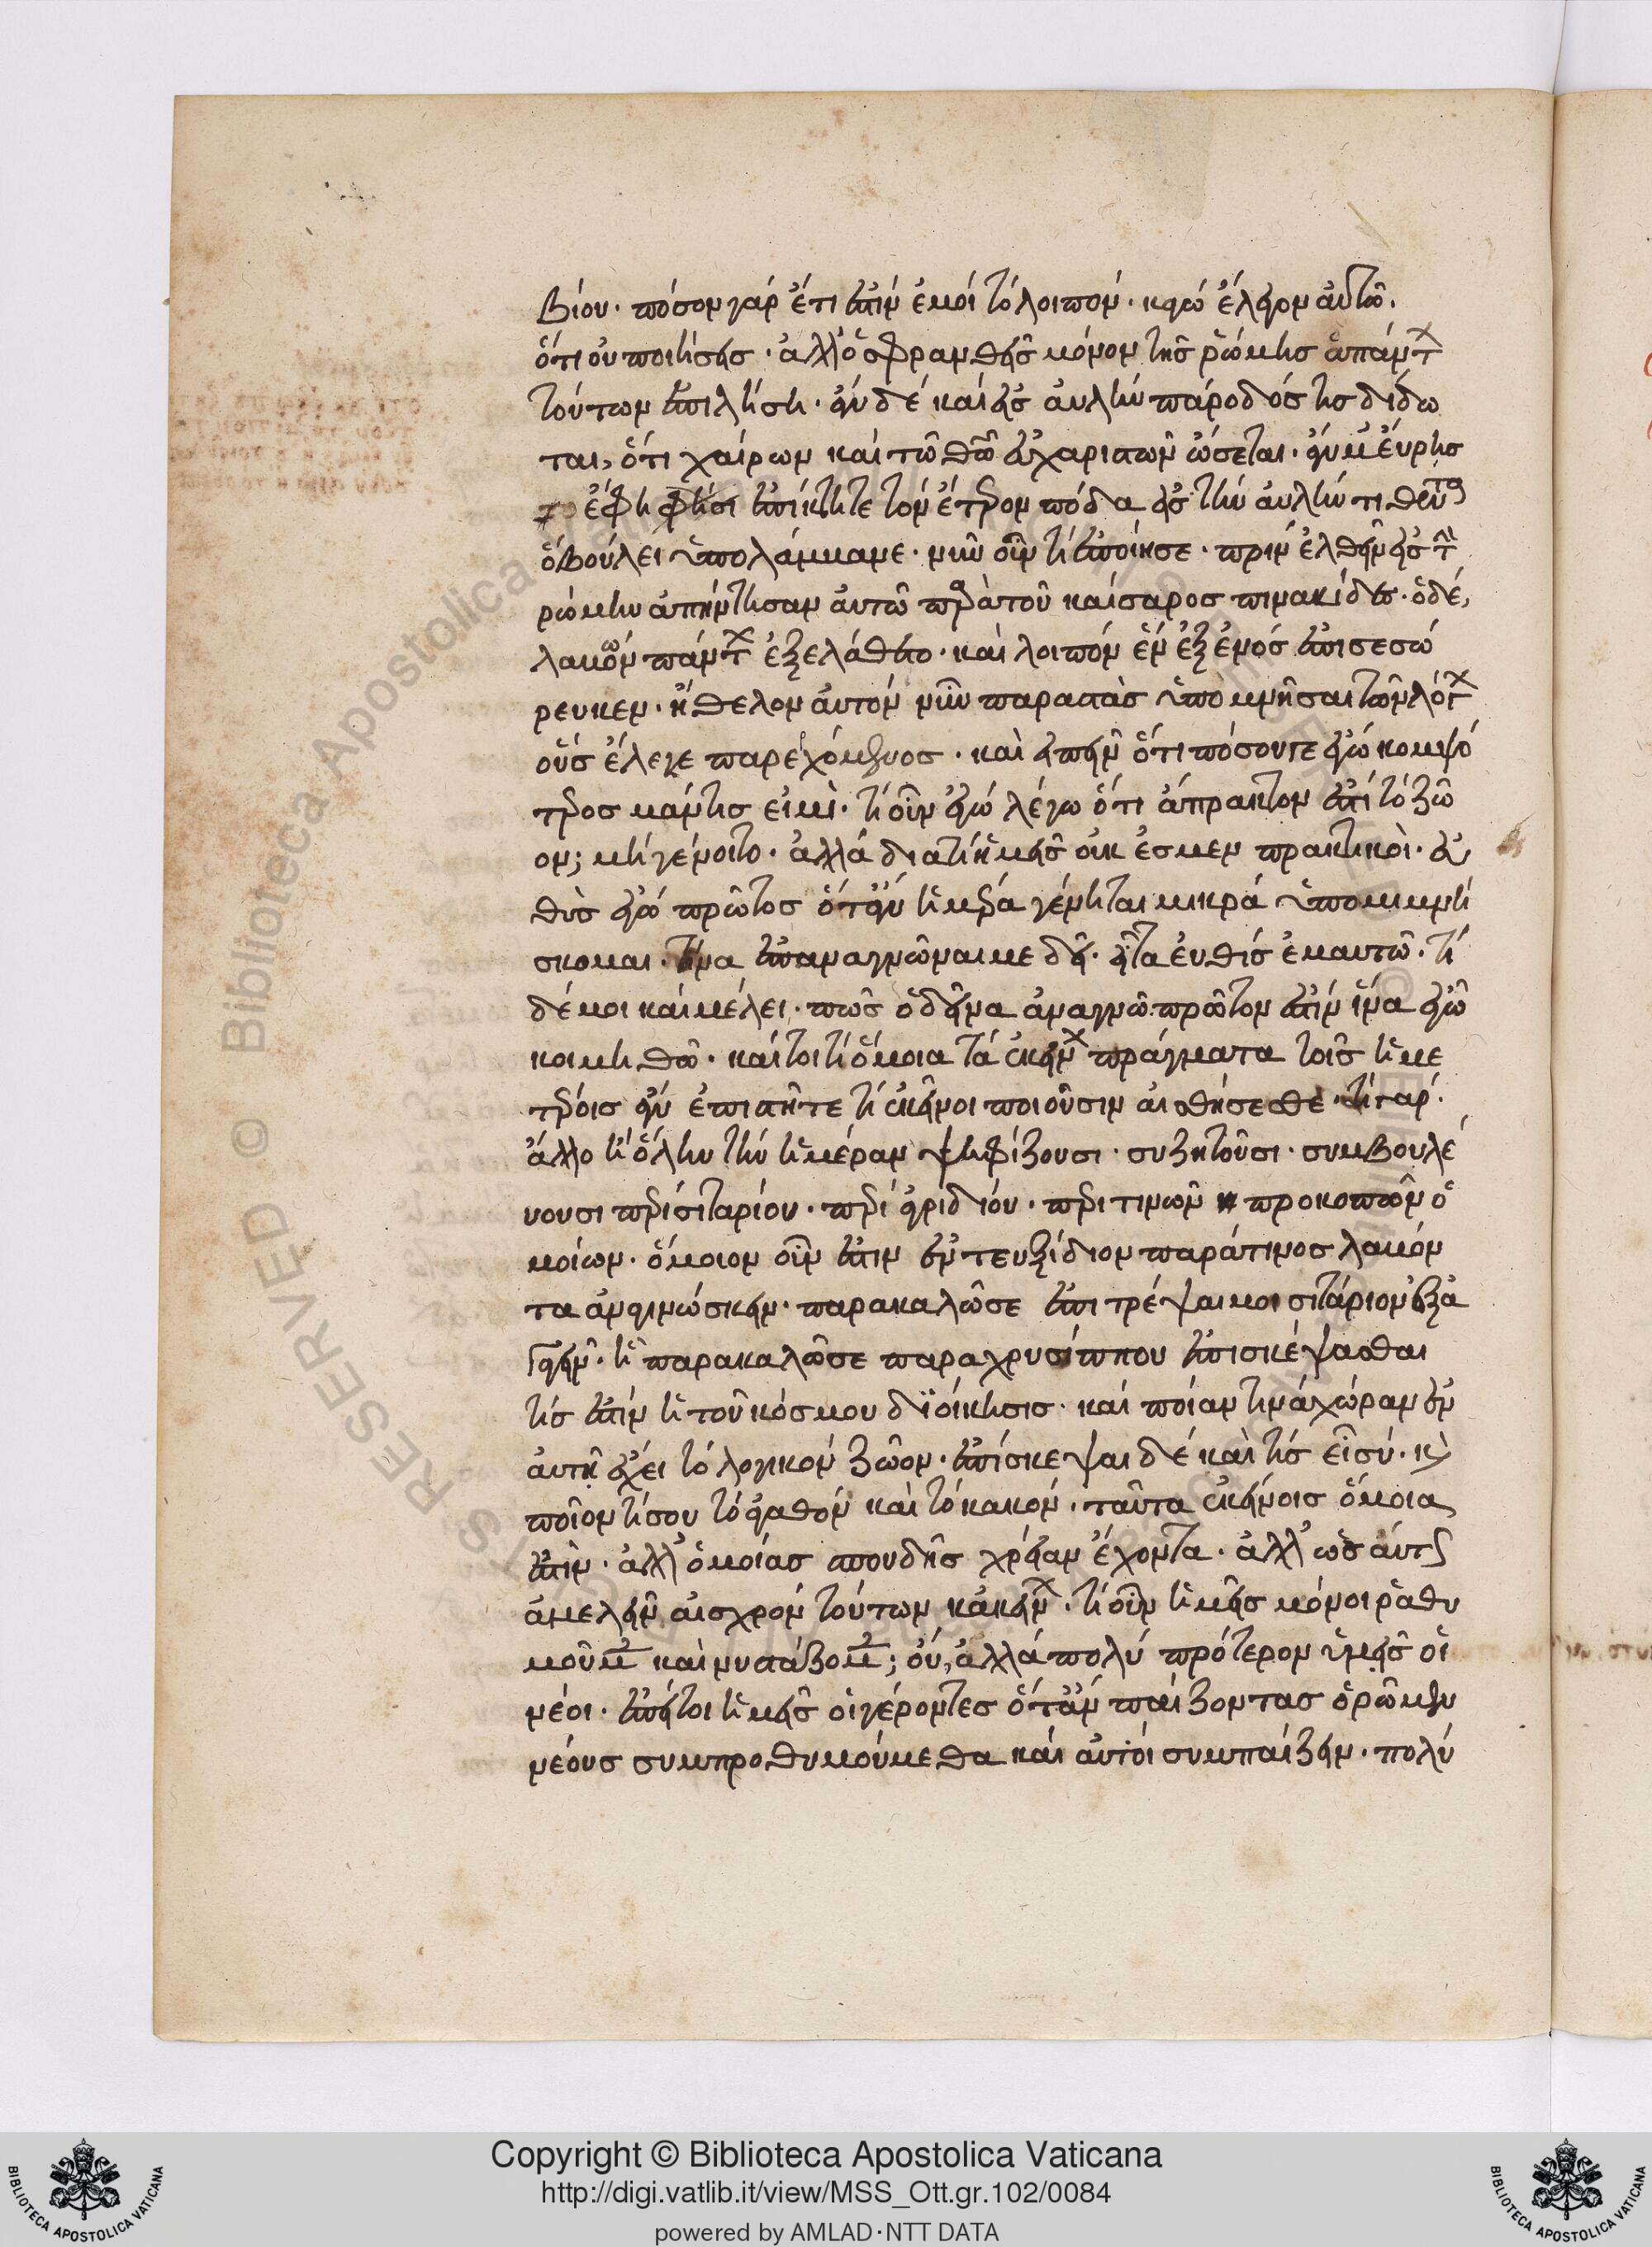 βίου· πόσον γάρ ἔτι ἐστίν ἐμοί τό λοιπόν· κἀγώ ἔλεγον αὐτῶ·
ὅτι οὐ ποιήσεις· ἀλλ' ὀσφρανθείς μόνον τῆς ῥώμης ἁπάντων
τούτων ἐπιλήση· ἄν δέ καί εἰς αὐλήν πάροδός τις δίδω
ται, ὅτι χαίρων καί τῶ θεῶ εὐχαριστῶν ὤσεται· ἄν με εὕρης
ἔφη φησί ἐπίκτητε τόν ἕτερον πόδα εἰς τήν αὐλήν τιθέντα
ὅ βούλει ὑπολάμβανε· νῦν οὖν τί ἐποίησε· πρίν ἐλθεῖν εἰς τὴν
ρώμην ἀπήντησαν αὐτῶ παρὰ τοῦ καίσαρος πινακίδες· ὁ δέ,
λαβών πάντων ἐξελάθετο· καὶ λοιπόν ἕν ἐξ ἑνός ἐπισεσώ
ρευκεν· ἤθελον αὐτόν νῦν παραστὰς ὑπομνῆσαι τῶν λόγων
οὕς ἔλεγε παρερχόμενος· καὶ εἰπεῖν ὅτι πόσου γε ἐγώ κομψό
τερος μάντις εἰμὶ· τί οὖν ἐγώ λέγω ὅτι ἄπρακτον ἐστί τό ζῶ
ον; μή γένοιτο· ἀλλά διατί ἡμεῖς οὐκ ἐσμεν πρακτικοὶ· εὐ
θὺς ἐγώ πρῶτος ὅταν ἡμέρα γένηται μικρά ὑπομιμνή
σκομαι· τίνα ἐπαναγνῶναι με δεῖ· εἶτα εὐθύς ἐμαυτῶ· τί
δέ μοι καί μέλει· πῶς ὁ δεῖνα ἀναγνῶ· πρῶτον ἐστίν ἵνα ἐγὼ
κοιμηθῶ· καίτοι τί ὅμοια τά ἐκείνων πράγματα τοῖς ἡμε
τέροις ἄν ἐπιστῆτε τί ἐκεῖνοι ποιοῦσιν αἰσθήσεσθε· τί γαρ·
ἄλλο ἤ ὅλην τήν ἡμέραν ψηφίζουσι· συζητοῦσι· συμβουλέ
υουσι περί σιταρίου· περί ἀγριδίου· περι τιμῶν κ προκοπῶν ὁ
μοίων· ὅμοιον οὖν ἐστιν ἐντευξίδιον παράτινος λαβόν
τα ἀναγινώσκειν· παρακαλῶ σε ἐπιτρέψαι μοι σιτάριον ἐξα
γαγεῖν· ἤ παρακαλῶ σε παρα χρυσίππου ἐπισκέψασθαι
τίς ἐστίν ἡ τοῦ κόσμου διοίκησις· καί ποίαν τινά χώραν ἐν
αὐτῆ ἔχει τό λογικόν ζῶον· ἐπίσκεψαι δέ καὶ τίς εἶ σύ· κὶ
ποῖον τί σου τό ἀγαθόν καὶ τό κακόν· ταῦτα ἐκείνοις ὅμοια
ἐστὶν· ἀλλ' ὁμοίας σπουδῆς χρείαν ἔχοντα· ἀλλ' ὡς αύτως
ἀμελεῖν αἰσχρόν τούτων κἀκείνων· τί οὖν ἡμεῖς μόνοι ῥαθυ
μοῦμεν καὶ νυστάζομεν; οὐ, ἀλλά πολύ πρότερον ὑμεῖς οἱ
νέοι· ἐπείτοι ἡμεῖς οἱ γέροντες ὅτἂν παίζοντας ὁρῶμεν
νέους συμπροθυμούμεθα καί αὐτοί συμπαίζειν· πολύ
Copyright © Biblioteca Apostolica Vaticana
http://digi.vatlib.it/view/MSS_Ott.gr.102/0084
powered by AMLAD·NTT DATA